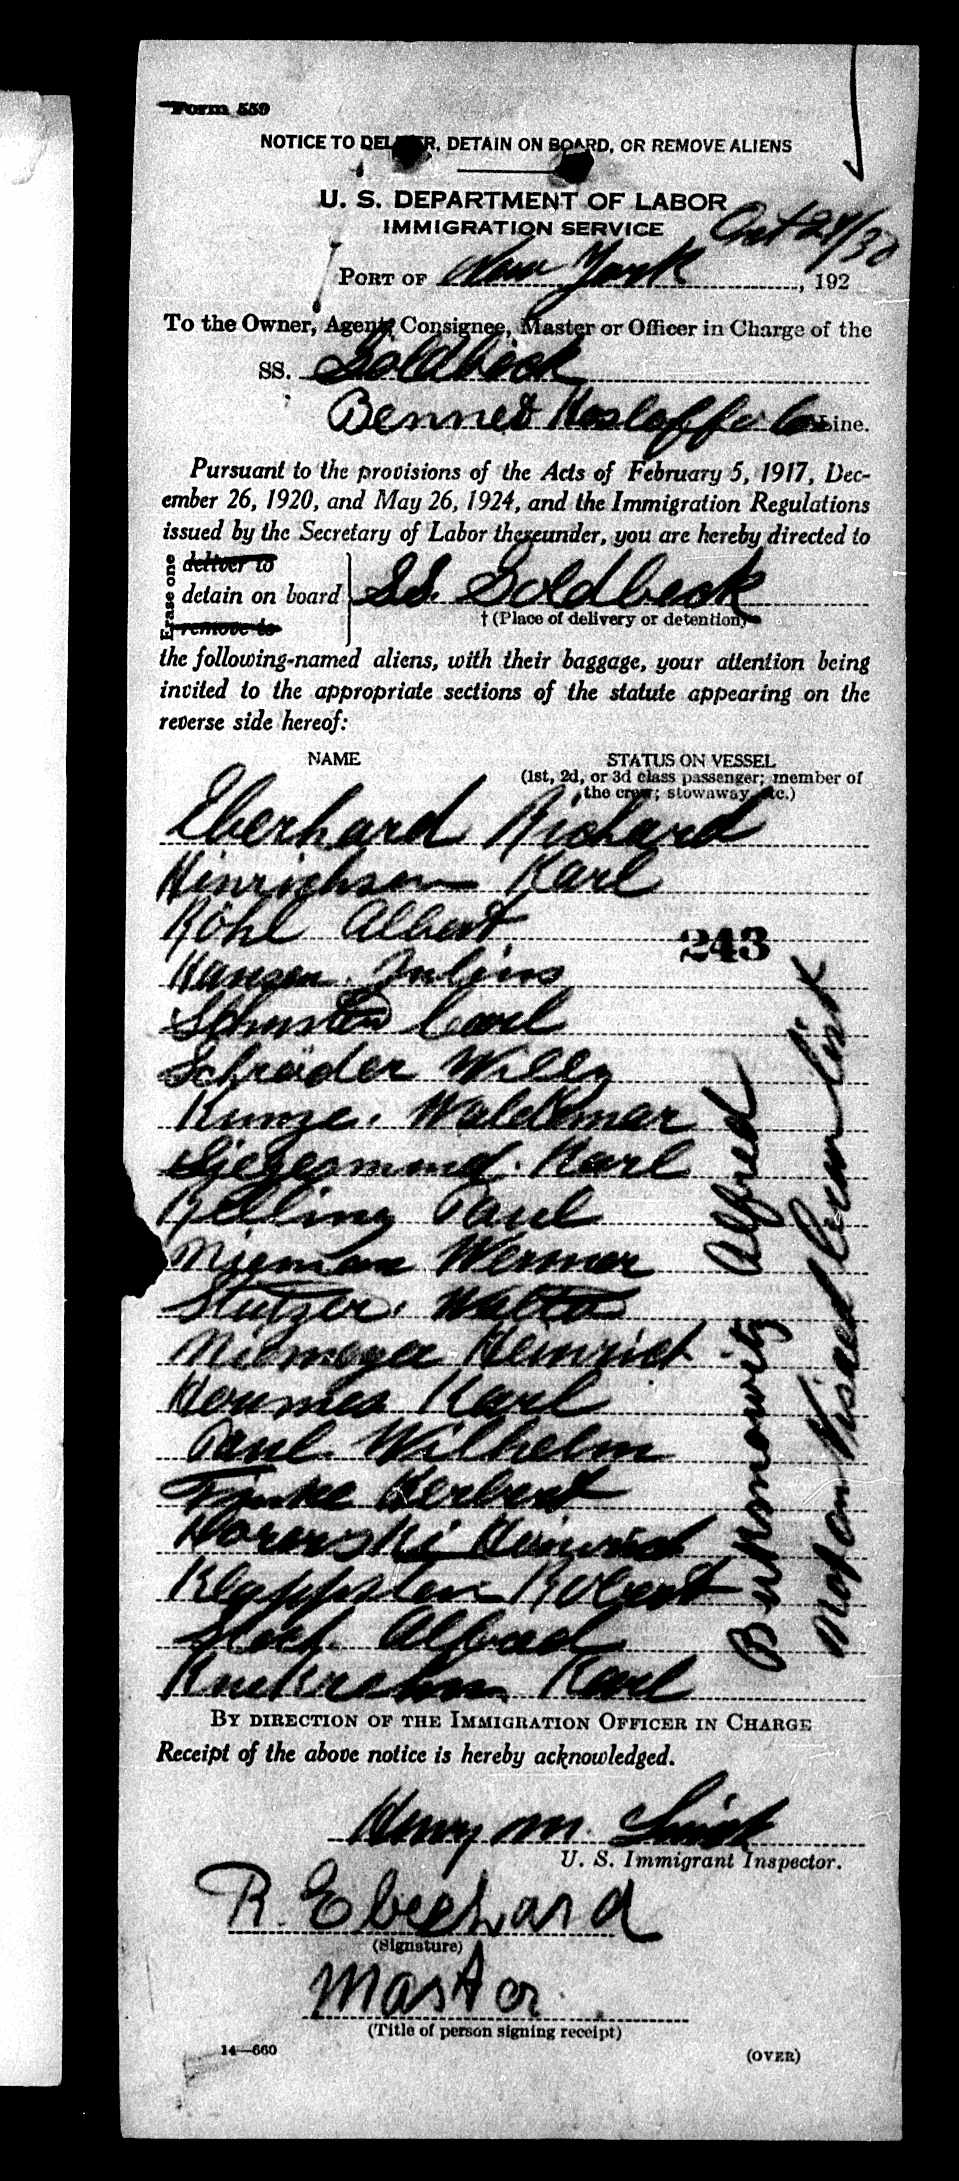 Form 559
NOTICE TO DELIVER, DETAIN ON BOARD, OR REMOVE ALIENS
U. S. DEPARTMENT OF LABOR
IMMIGRATION SERVICE
Oct 28/30
PORT OF New York, 192
To the Owner, Agent, Consignee, Master or Officer in Charge of the
SS. Goldbeck
Bennet Line.
Pursuant to the provisions of the Acts of February 5, 1917, Dec-
ember 26, 1920, and May 26, 1924, and the Immigration Regulations
issued by the Secretary of Labor thereunder, you are hereby directed to
Erase one
deliver to
detain on board SS. Goldbeck
remove to
† (Place of delivery or detention)
the following-named aliens, with their baggage, your attention being
invited to the appropriate sections of the statute appearing on the
reverse side hereof:
NAME STATUS ON VESSEL
(1st, 2d, or 3d class passenger; member of
the crew; stowaway, etc.)
Eberhard Richard
Hinrichsen Karl
Röhl Albert
243
Hansen Julius
Carl
Schröder Willy
Kunze. Waldemar
Karl
Relling Paul
Nieman Werner
Stutzer. Walter
Niemeyer Heinrich
Karl
Paul Wilhelm
Finke Herbert
Heinrich
Robert
Alfred
Karl
Alfred
Not on Visaed Crew List
BY DIRECTION OF THE IMMIGRATION OFFICER IN CHARGE
Receipt of the above notice is hereby acknowledged.
Henry M.
U. S. Immigrant Inspector.
R. Eberhard
(Signature)
Master
(Title of person signing receipt)
14—660
(OVER)